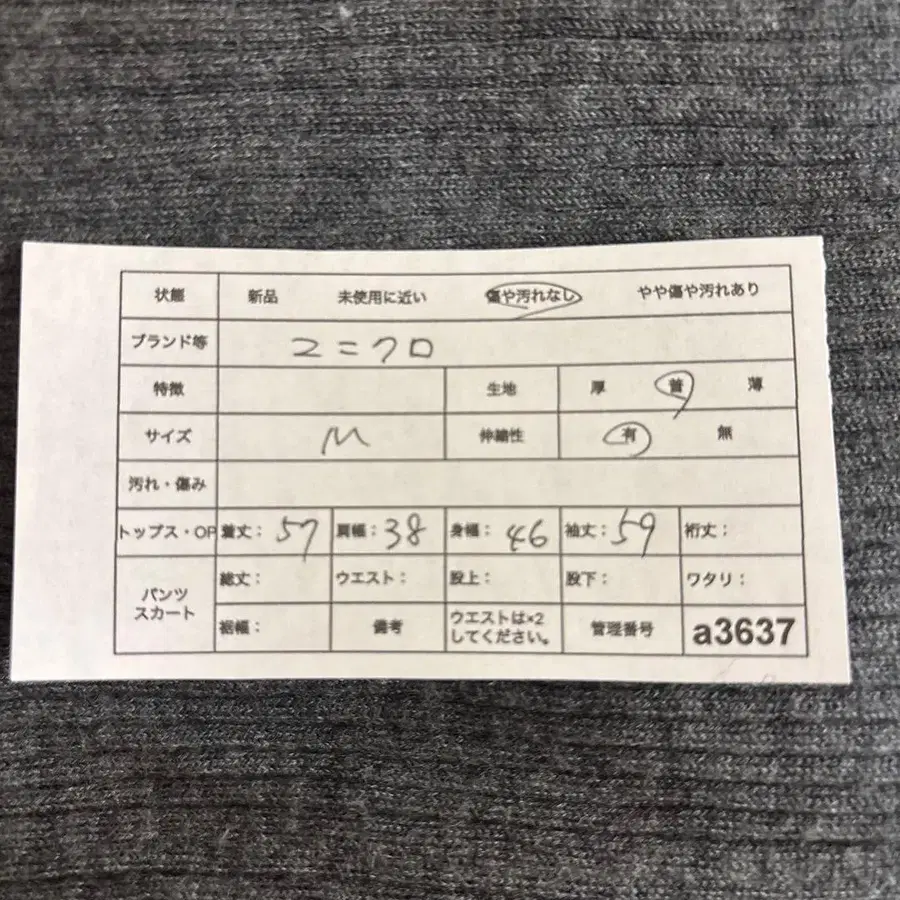 状態 新品 未使用に近い 傷や汚れなし やや傷や汚れあり
ブランド等 ユニクロ
特徴 生地 厚 普 薄
サイズ M 伸縮性 有 無
汚れ・傷み
トップス・OP 着丈: 57 肩幅: 38 身幅: 46 袖丈: 59 裄丈:
パンツ
スカート
総丈: ウエスト: 股上: 股下: ワタリ:
裾幅: 備考 ウエストは×2
してください。 管理番号 a3637